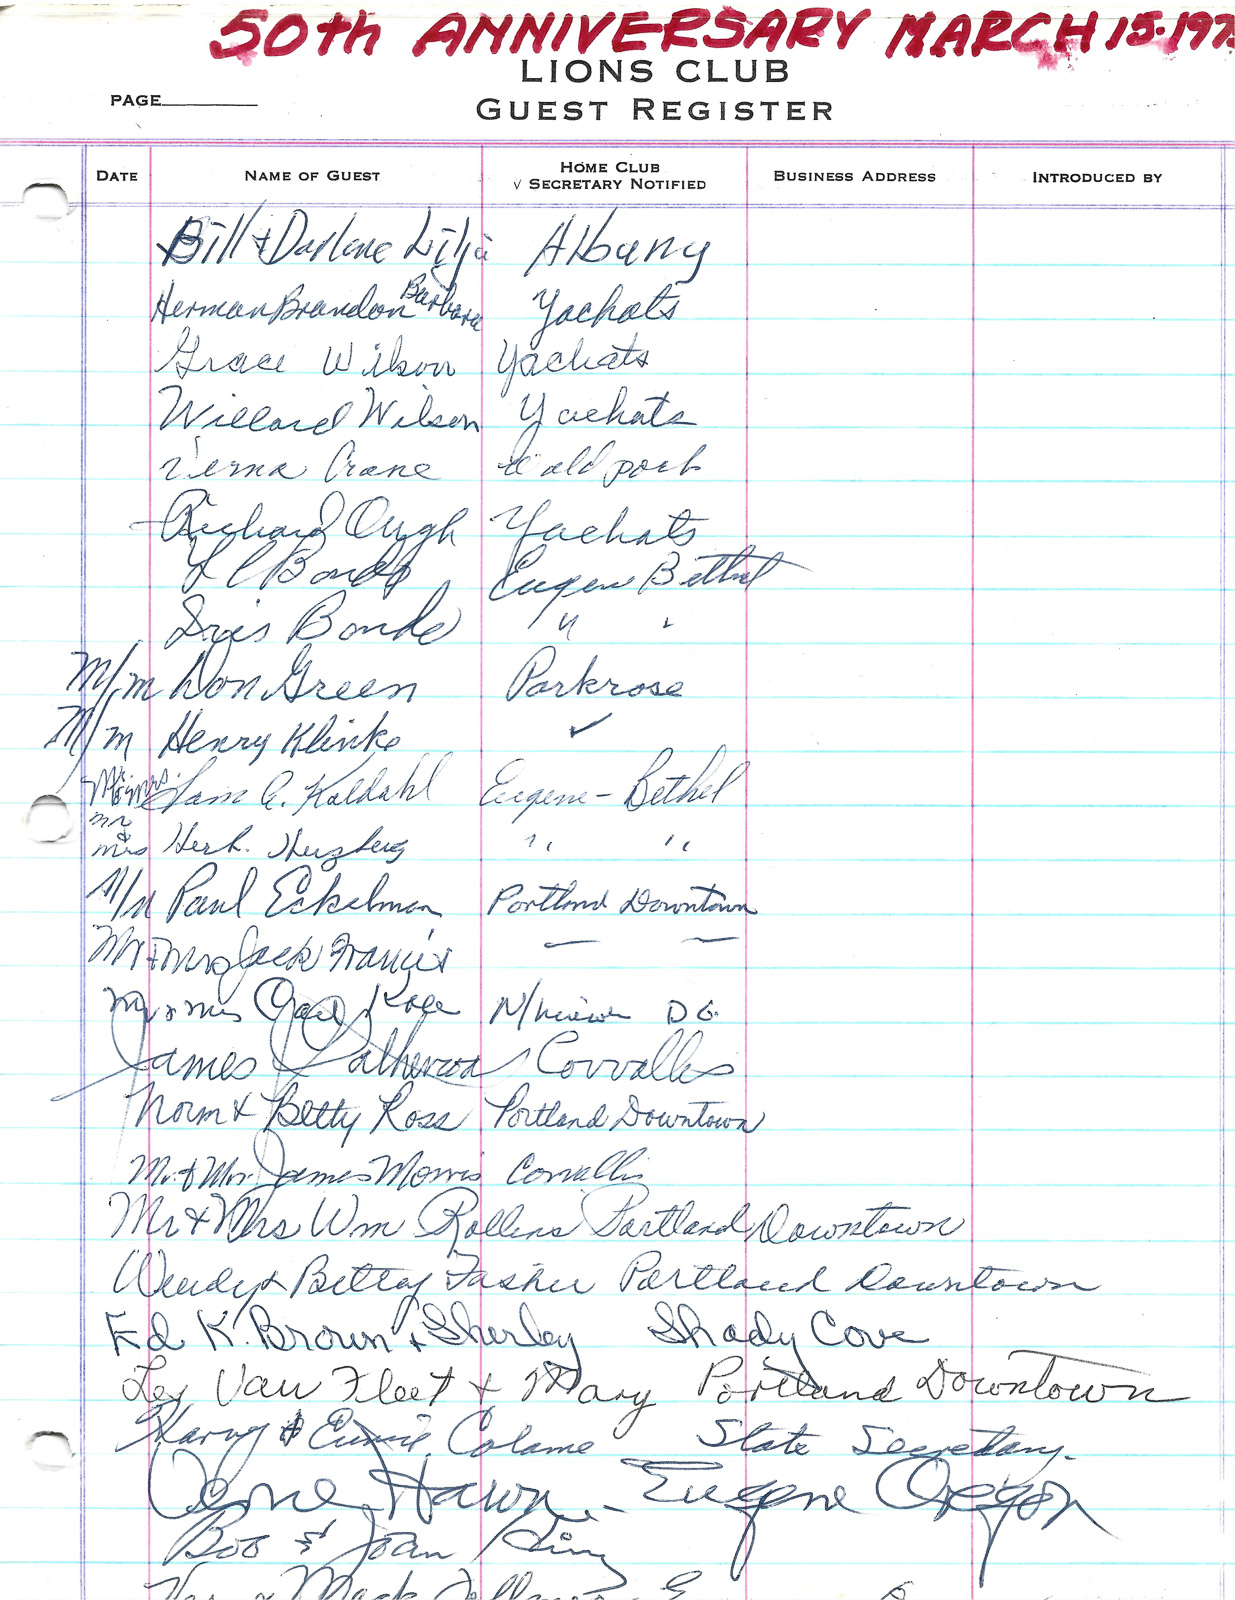 50th ANNIVERSARY MARCH 15·197
LIONS CLUB
PAGE
GUEST REGISTER
DATE NAME OF GUEST HOME CLUB √ SECRETARY NOTIFIED BUSINESS ADDRESS INTRODUCED BY
Bill & Darlene Lilja Albany
Herman Brandon Barbara Yachats
Grace Wilson Yachats
Willard Wilson Yachats
Verna Crane Waldport
Richard Ough Yachats
Bonde Eugene Bethel
Iris Bonde " "
M/m Don Green Parkrose
M/m Henry Klinke ✓
Mr. & Mrs. Sam A. Kaldahl Eugene - Bethel
Mr & Mrs Herb. Herzberg " "
M/M Paul Eckelman Portland Downtown
Mr & Mrs Jack Francis — —
Mr & Mrs D G.
James Corvallis
Norm & Betty Ross Portland Downtown
Mr. & Mrs. James Morris Corvallis
Mr & Mrs Wm Rollins Portland Downtown
Wendy & Bettey Portland Downtown
Ed K. Brown & Sherley Shady Cove
Ley Van Fleet & Mary Portland Downtown
Harvey & Eunice Colame State Secretary.
Gene Hawn. - Eugene Oregon
Bob & Joan King
& Mack